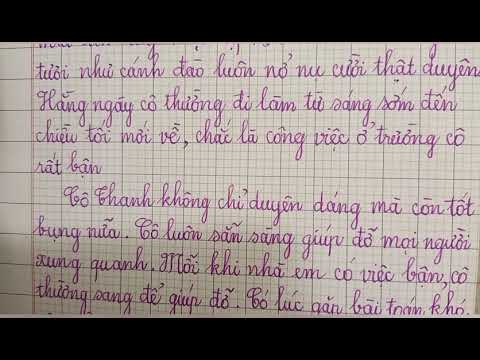 tươi như cánh đào luôn nở nụ cười thật duyên
Hằng ngày cô thường đi làm từ sáng sớm đến
chiều tối mới về, chắc là công việc ở trường cô
rất bận
Cô Thanh không chỉ duyên dáng mà còn tốt
bụng nữa. Cô luôn sẵn sàng giúp đỡ mọi người
xung quanh. Mỗi khi nhà em có việc bận, cô
thường sang để giúp đỡ. Có lúc gặp bài toán khó,